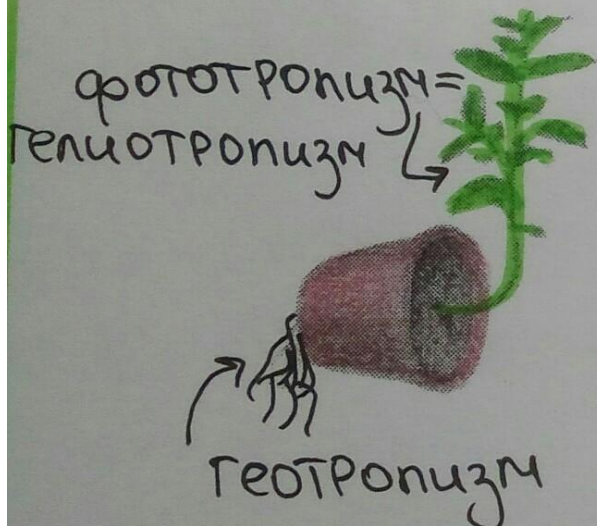 фототропизм=
гелиотропизм
геотропизм